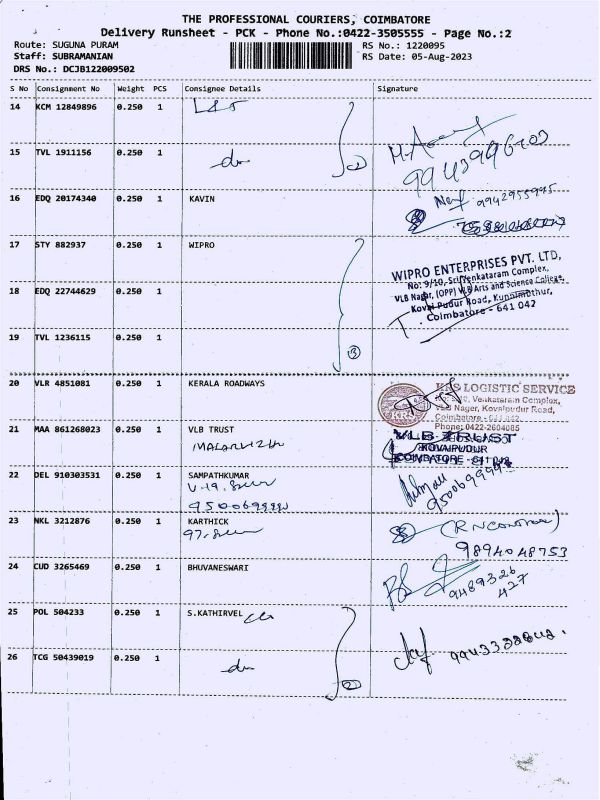 THE PROFESSIONAL COURIERS, COIMBATORE
Delivery Runsheet - PCK - Phone No.:0422-3505555 - Page No.:2
Route: SUGUNA PURAM
RS No.: 1220095
Staff: SUBRAMANIAN
RS Date: 05-Aug-2023
DRS No.: DCJB122009502
S No Consignment No Weight PCS Consignee Details Signature
14 KCM 12849896 0.250 1 L&T
15 TVL 1911156 0.250 1
16 EDQ 20174340 0.250 1 KAVIN
9942955995
17 STY 882937 0.250 1 WIPRO
WIPRO ENTERPRISES PVT. LTD,
No: 9/10, Sri Venkataram Complex,
VLB Nagar, (OPP) VLB Arts and Science College,
Kovai Pudur Road, Kuniamuthur,
Coimbatore - 641 042
18 EDQ 22744629 0.250 1
19 TVL 1236115 0.250 1
3
20 VLR 4851081 0.250 1 KERALA ROADWAYS
KRS LOGISTIC SERVICE
Venkataram Complex,
VLB Nager, Kovaipudur Road,
Coimbatore - 641 042
Phone: 0422-2604085
21 MAA 861268023 0.250 1 VLB TRUST
VLB TRUST
KOVAIPUDUR
COIMBATORE - 641 042
22 DEL 910303531 0.250 1 SAMPATHKUMAR
23 NKL 3212876 0.250 1 KARTHICK
9894048753
24 CUD 3265469 0.250 1 BHUVANESWARI
9489326
427
25 POL 504233 0.250 1 S.KATHIRVEL
26 TCG 50439019 0.250 1
2